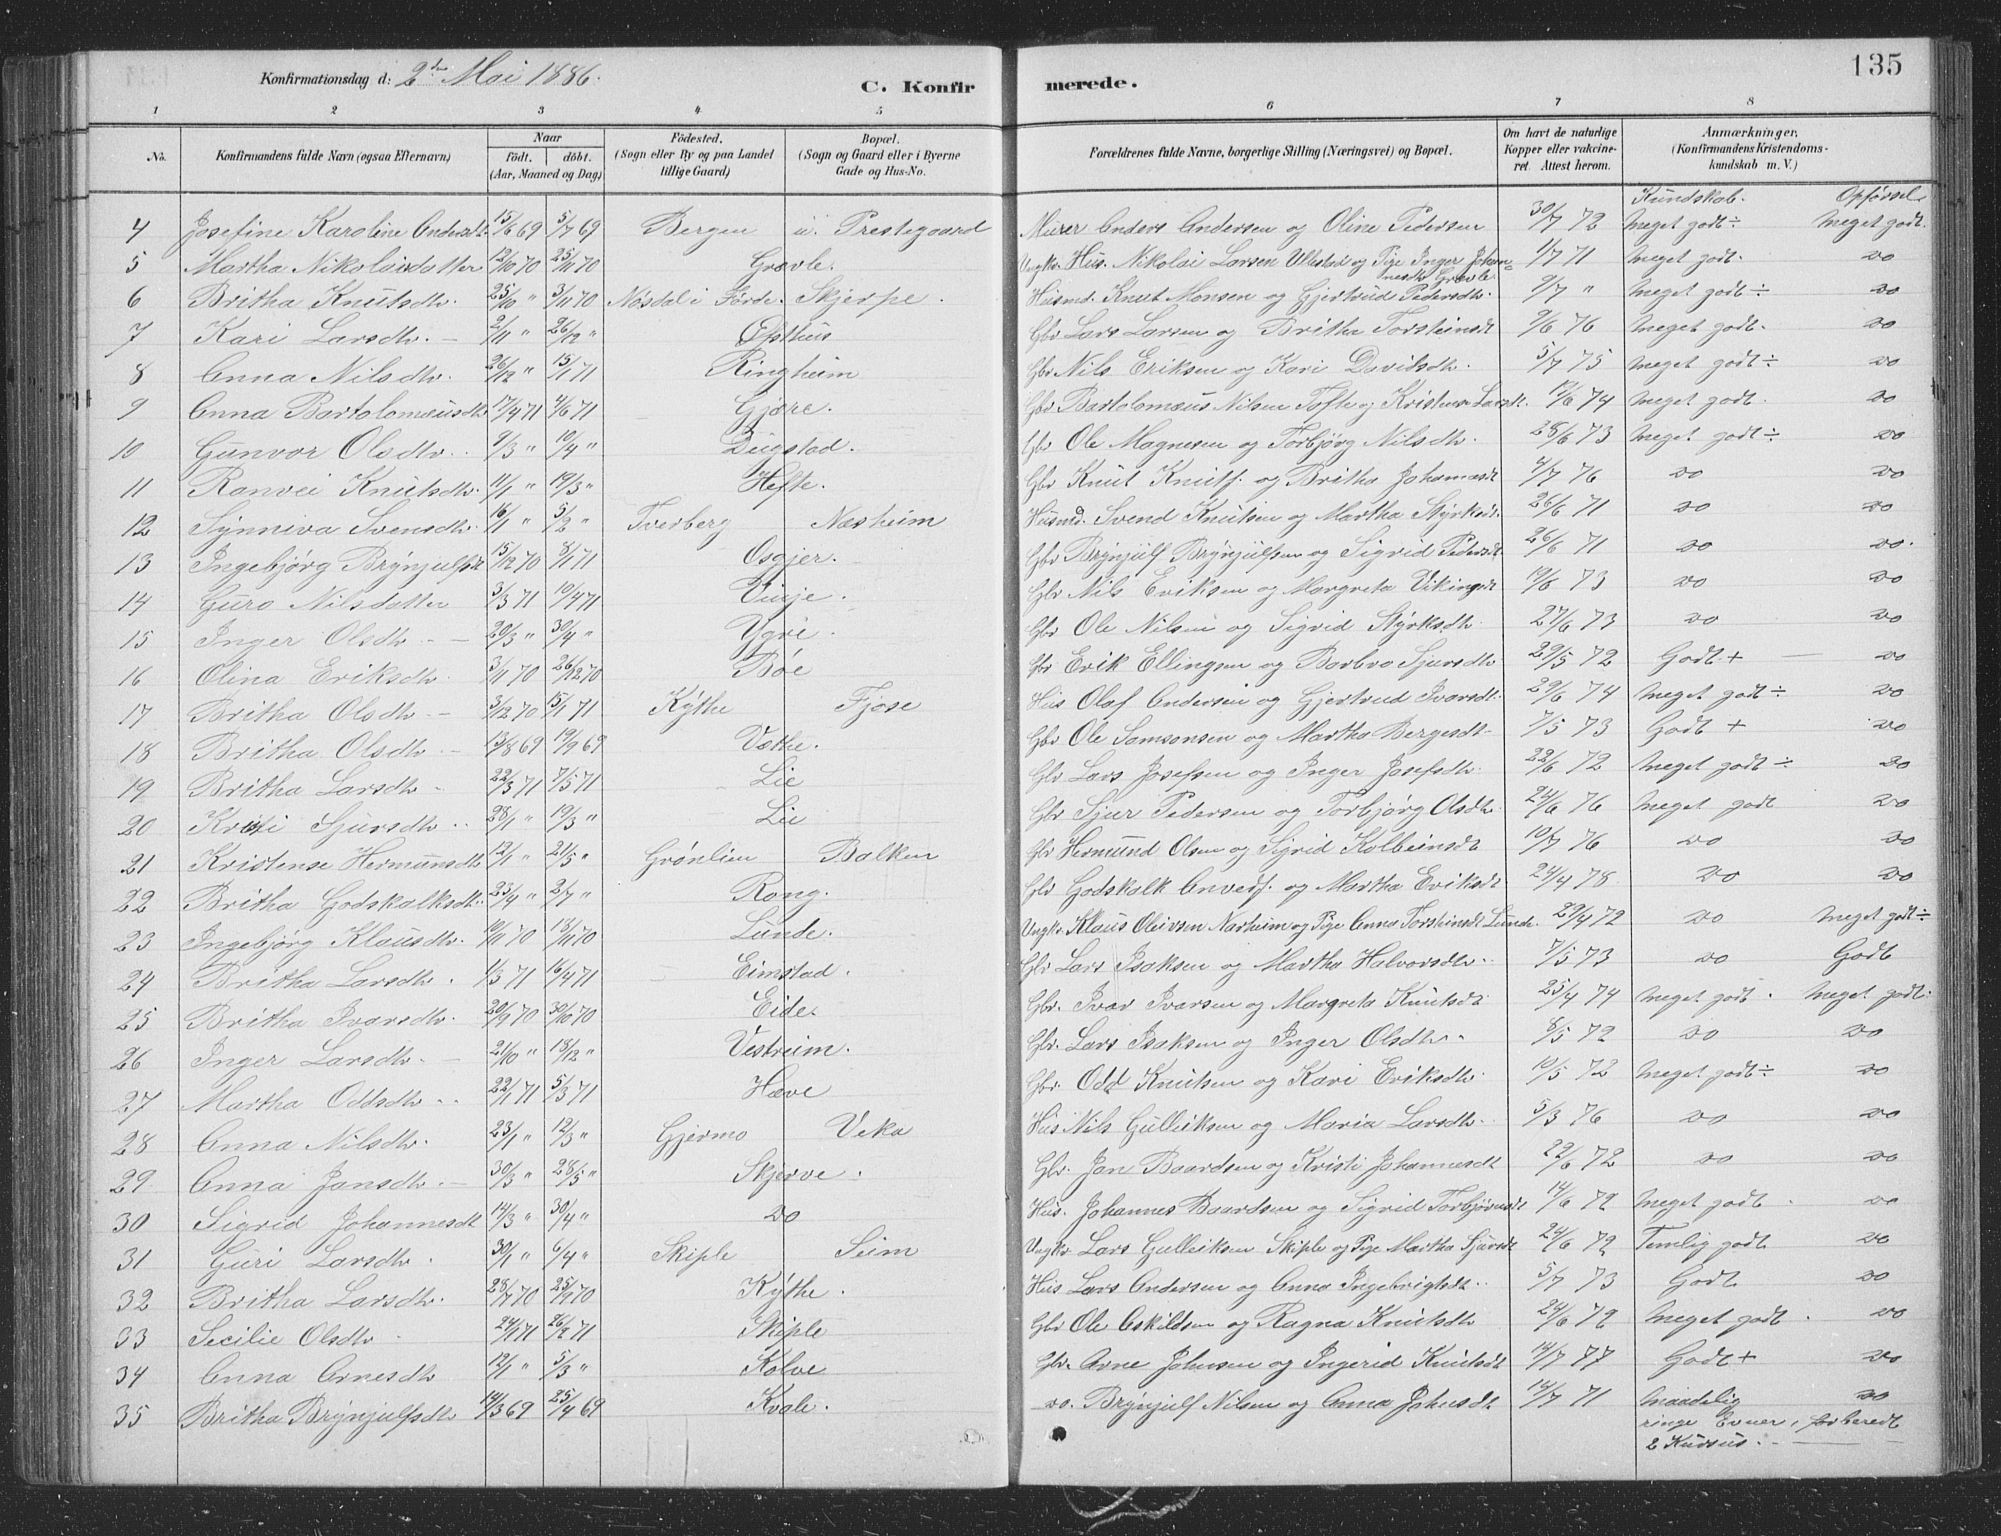 135
Konfirmationsdag d: 2den Mai 1886.
C. Konfirmerede.
1 2 3 4 5 6 7 8
No. Konfirmandens fulde Navn (ogsaa Efternavn) Naar födt. döbt. (Aar, Maaned og Dag) Födested. (Sogn eller By og paa Landet tillige Gaard) Bopæl. (Sogn og Gaard eller i Byerne Gade og Hus-No. Forældrenes fulde Navne, borgerlige Stilling (Næringsvei) og Bopæl. Om havt de naturlige Kopper eller vakcineret. Attest herom. Anmærkninger. (Konfirmandens Kristendomskundskab m. V.)
Kundskab. Opførsel.
4 Josefine Karoline Andersdt 15/6 69 5/7 69 Bergen u. Prestegaard Murer Anders Andersen og Oline Pedersen 30/7 72 Meget godt ÷ Meget godt.
5 Martha Nikolaisdatter 12/10 70 25/11 70 Grævle. Ungk. Hus. Nikolai Larsen Ullestad og Pige Inger Johannesdt Grævle. 1/7 71 Meget godt. do
6 Britha Knutsdtr. 25/10 " 3/11 70 Nøsdal i Førde Skjerpe. Husmd. Knut Monsen og Gjertrud Pedersdtr. 9/7 " Meget godt ÷ do
7 Kari Larsdtr. 2/11 " 26/12 " Opsthus Gbr Lars Larsen og Britha Torsteinsdt 9/6 76 Meget godt. do
8 Anna Nilsdtr. 26/12 " 15/1 71 Ringheim Gbr Nils Eriksen og Kari Davidsdtr. 5/7 75 Meget godt ÷ do
9 Anna Bartolomæusdtr 17/4 71 4/6 71 Gjære. Gbr Bartolomæus Nilsen Tofte og Kristense Larsdt. 12/6 74 Meget godt. do
10 Gunvor Olsdtr. 9/3 " 10/4 " Dugstad. Gbr Ole Magnesen og Torbjørg Nilsdtr. 28/6 73 Meget godt ÷ do
11 Ranvei Knutsdtr. 11/1 " 19/3 " Hefte. Gbr Knut Knuts. og Britha Johannesdt 4/7 76 do do
12 Synniva Svensdtr. 16/1 " 5/2 " Tverberg Næsheim Husmd. Svend Knutsen og Martha Styrksdt. 26/6 71 do do
13 Ingebjørg Brynjulfsdt 15/12 70 8/1 71 Osgjer. Gbr Brynjulf Brynjulfsen og Sigrid Pedersdt 26/6 71 do do.
14 Guro Nilsdatter 3/3 71 10/4 71 Vinje. Gbr Nils Eriksen og Margreta Vikingsdt 19/6 73 do do
15 Inger Olsdtr. 20/3 " 30/4 " Ygre. Gbr Ole Nilsen og Sigrid Styrksdtr. 27/6 73 do do
16 Olina Eriksdtr. 3/11 70 26/12 70 Bøe Gbr Erik Ellingsen og Barbro Sjursdtr. 29/5 72 Godt + do
17 Britha Olsdtr. 3/12 70 15/1 71 Kythe Fjose Hus Olaf Andersen og Gjertrud Ivarsdt. 29/6 74 Meget godt ÷ do
18 Britha Olsdtr. 13/8 69 19/9 69 Væthe. Gbr Ole Samsonsen og Martha Bergesdt. 7/5 73 Godt + do
19 Britha Larsdtr. 22/3 71 7/5 71 Lie Gbr Lars Josefsen og Inger Josefsdtr. 22/6 72 Meget godt ÷ do
20 Kristi Sjursdtr. 28/1 " 19/3 " Lie Gbr Sjur Pedersen og Torbjørg Olsdtr. 24/6 76 Meget godt do
21 Kristense Hermunsdtr 12/1 " 21/5 " Grønlien Balken Gbr Hermund Olsen og Sigrid Kolbeinsdt 10/7 76 do do
22 Britha Godskalksdt. 23/4 " 2/7 " Rong. Gbr Godskalk Anved. og Martha Eriksdt 24/4 78. do do
23 Ingebjørg Klausdtr. 10/11 70 13/11 70 Lunde. Ungkr. Klaus Oleivsen Nærheim og Pige Anna Torsteinsdt Lunde. 29/4 72 do Meget godt ÷
24 Britha Larsdtr. 1/3 71 16/4 71 Eimstad. Gbr Lars Isaksen og Martha Halvorsdtr. 7/5 73 do Godt
25 Britha Ivarsdtr. 20/9 70 30/10 70 Eide. Gbr. Ivar Ivarsen og Margreta Knutsdt 25/4 74 Meget godt. Meget godt.
26 Inger Larsdtr. 21/10 " 18/12 " Vestreim. Gbr. Lars Isaksen og Inger Olsdtr. 8/5 72 do do
27 Martha Oddsdtr. 22/1 71 5/3 71 Hæve Gbr. Odd Knutsen og Kari Eriksdtr. 10/5 72 Meget godt ÷ do
28 Anna Nilsdtr. 23/1 " 12/3 " Gjermo Veka Hus Nils Gulleiksen og Maria Larsdtr. 5/3 76 do do
29 Anna Jansdtr. 30/3 " 28/5 " Skjerve. Gbr. Jan Baardsen og Kristi Johannesdt 22/6 72 do do
30 Sigrid Johannesdt 14/3 " 30/4 " do Hus. Johannes Baardsen og Sigrid Torbjørnsdt 14/6 72 Meget godt. do
31 Guri Larsdtr. 30/1 " 6/4 " Skiple Seim Ungkr. Lars Gulleiksen Skiple og Pige Martha Sjursdt 24/6 72 Temlig godt do
32 Britha Larsdtr. 28/7 70 25/9 70 Kythe. Hus Lars Andersen og Anna Ingebrigtsdt. 5/7 73 Godt do
33 Secilie Olsdtr. 24/1 71 26/2 71 Skiple Gbr Ole Askildsen og Ragna Knutsdtr 24/6 72 Meget godt. do
34 Anna Arnesdtr 12/1 " 5/3 " Kolve Gbr. Arne Johnsen og Ingerid Knutsdt 14/7 77 Godt + do
35 Britha Brynjulfsdtr 14/3 69 25/4 69 Kvale. do. Brynjulf Nilsen og Anna Johnsdt 14/7 71 Maadelig do
ringe Evner, forberedt
2 Kursus.